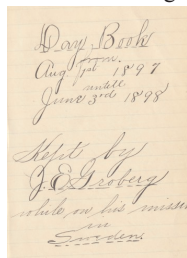 Day Book
from
Aug 1st 1897
untill
June 3rd 1898
Kept by
J. E. Groberg
while on his mission
in
Sweden